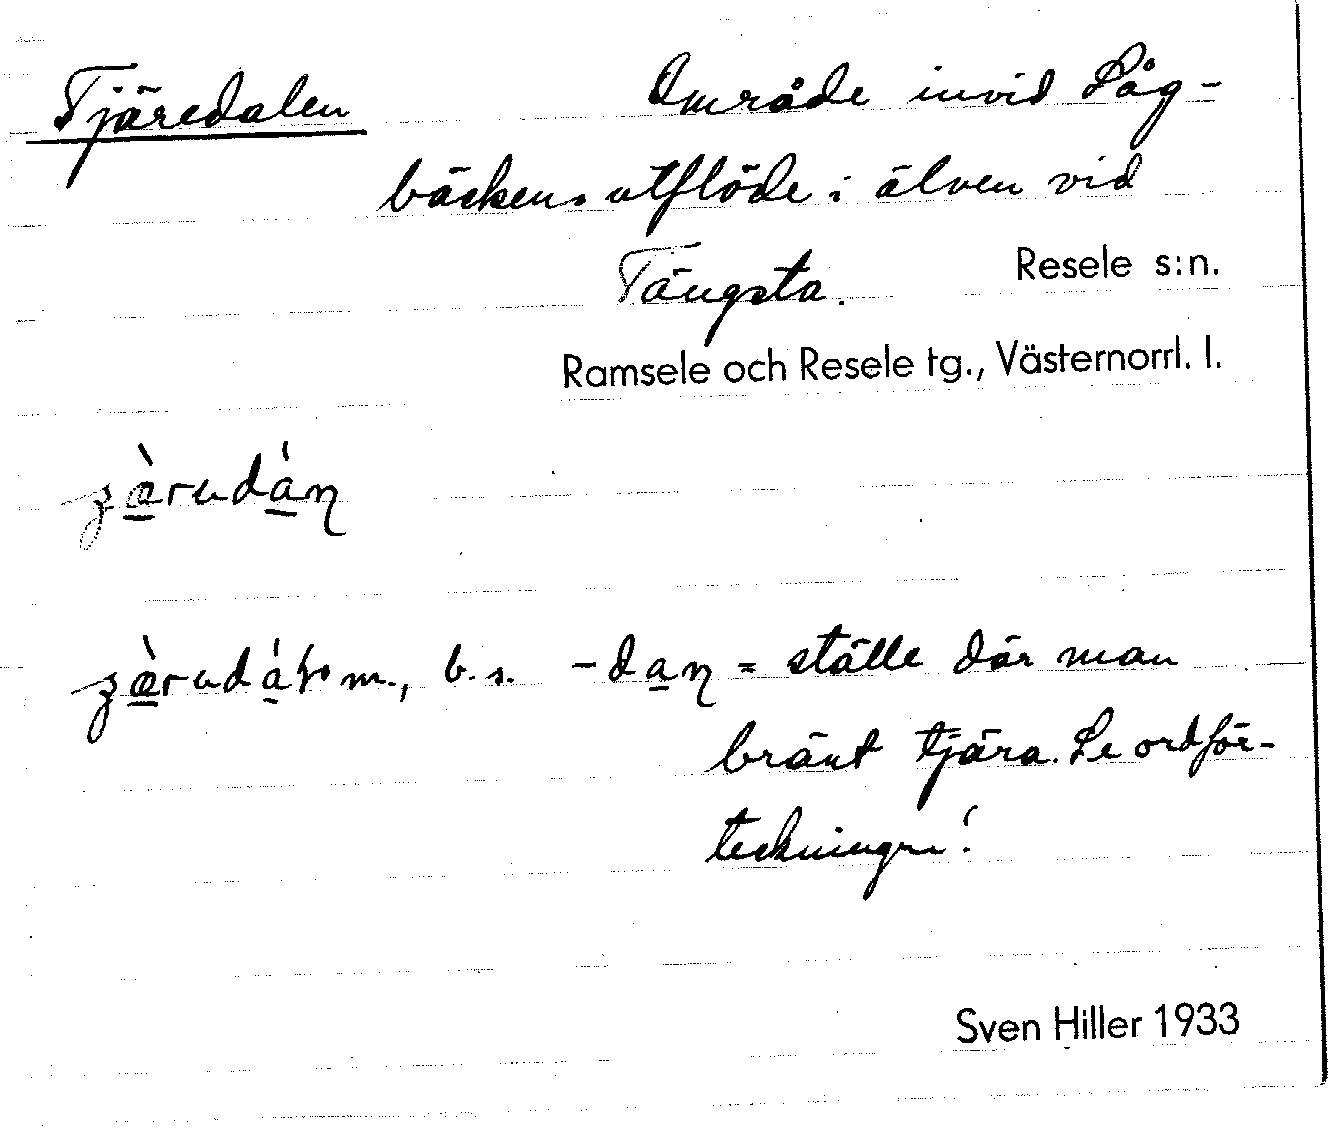 Tjäredalen Område invid Såg-
bäckens utflöde i älven vid
Tängsta. Resele s:n.
Ramsele och Resele tg., Västernorrl. l.
m., b. s. = ställe där man
bränt tjära. Se ordför-
teckningen!
Sven Hiller 1933